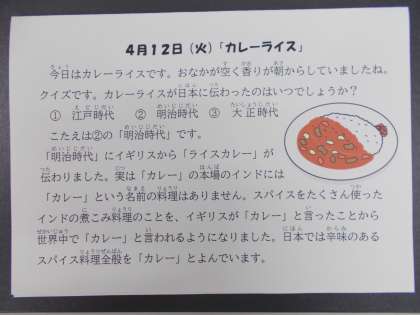 4月12日（火）「カレーライス」
今日はカレーライスです。おなかが空く香りが朝からしていましたね。
クイズです。カレーが日本に伝わったのはいつでしょうか？
① 江戸時代　② 明治時代　③ 大正時代
こたえは②の「明治時代」です。
「明治時代」にイギリスから「ライスカレー」が
伝わりました。実は「カレー」の本場のインドには
「カレー」という名前の料理はありません。スパイスをたくさん使った
インドの煮こみ料理のことを、イギリスが「カレー」と言ったことから
世界中で「カレー」と言われるようになりました。日本では辛味のある
スパイス料理全般を「カレー」とよんでいます。